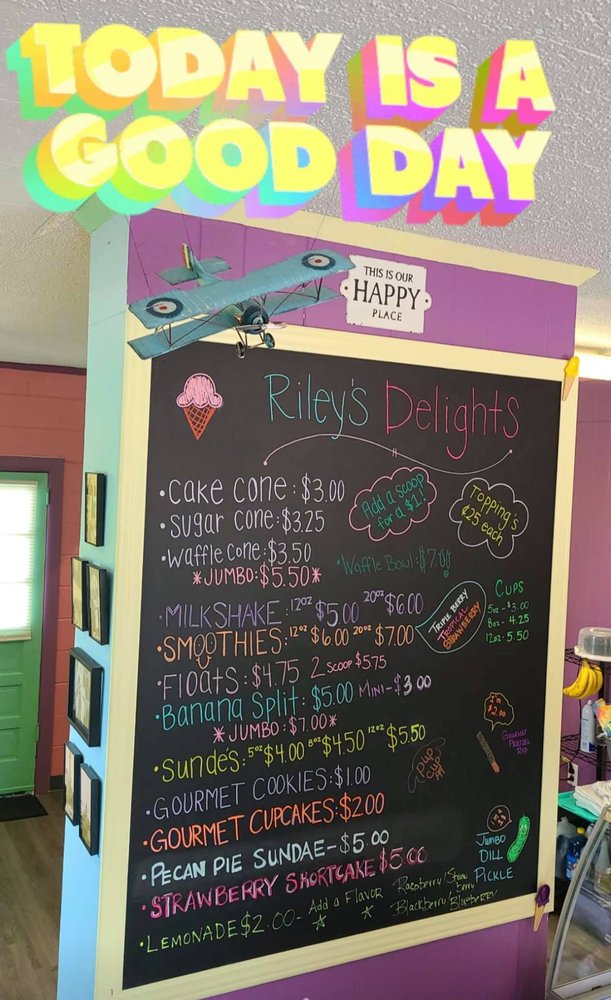 TODAY IS A
GOOD DAY
THIS IS OUR
HAPPY
PLACE
Riley's Delights
•Cake Cone: $3.00
•Sugar Cone: $3.25
•Waffle Cone: $3.50
*JUMBO: $5.50*
Add a scoop
for a $1!
Topping's
¢25 each
•Waffle Bowl: $7.00
•MILKSHAKE: 12oz $5.00 20oz $6.00
•SMOOTHIES: 12oz $6.00 20oz $7.00
TRIPLE BERRY
TROPICAL
STRAWBERRY
CUPS
5oz - $3.00
8oz - 4.25
12oz - 5.50
•Floats: $4.75 2 SCOOP $5.75
•Banana Split: $5.00 MINI - $3.00
*JUMBO: $7.00*
•Sundes: 5oz $4.00 8oz $4.50 12oz $5.50
Pup
Cup
I'm
$2.00
GOURMET
PRETZEL
ROD
•GOURMET COOKIES: $1.00
•GOURMET CUPCAKES: $2.00
•PECAN PIE SUNDAE - $5.00
•STRAWBERRY SHORTCAKE $5.00
JUMBO
DILL
PICKLE
•LEMONADE $2.00 - Add a Flavor Raspberry/Strawberry
Blackberry/Blueberry